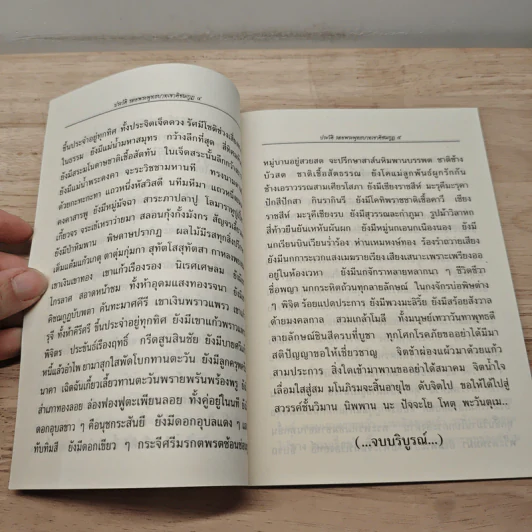 ประวัติ รอยพระพุทธบาทเขาคิชฌกูฏ ๔
ขึ้นประจำอยู่ทุกทิศ ทั้งประจิตเจ็ดดวง รัศมีโชติช่วง
ในธรรม ยังมีแม่น้ำมหาสมุทร กว้างลึกที่สุด
ยังมีสระมในดาษชาติเชื้อสัตทัน ในเจ็ดสระนั้นลึก
ยังมีแม่น้ำพระคงคา จะระวิชชามหานที
ด้วยกะทะกะทา แถวหนึ่งทัสวิสดี นทีมหิมา แถวหนึ่ง
คงคาสารชู ยังมีหมู่มัจฉา สาระภาปลาปู
เกี่ยวจร จระเข้เหราว่ายมา สลอนกุ้งกั้งมังกร
ยังมีป่าหิมพาน พิษดาษปรากฏ ผลไม้มีรสทุกสิ่ง
เต็มแต้มแก้วเกตุ ตาตุ่มกุ่มกา สุทัตโสสุทัตสา
เขาเงินเขาทอง เขาแก้วเรืองรอง นิเรศเศษลม
ไกรลาศ สอาดหน้าชม ทั้งห้าอุดมแสงทองรจนา
คิชฌกูฏบับพตา คันทะมาศศีรี เขาเงินพราวแพรว
รุจี ทั้งห้าคีรีศรี ขึ้นประจำอยู่ทุกทิศ ยังมีเขาแก้ว
พิจิตร ประชันธ์เรืองฤทธิ์ กรีดสูนสินชัย
หนึ่แล้วอ้าไพ ยามาสุกใสพัดโบกทานตะวัน ยังมีลูกครุฑ
นาคา เฉิดฉันเกี้ยวเลี้ยวทานตะวันพรายพรันพร้องพรู
สำเภาทองลอย ล่องฟ่องฟูตะเพียนลอย ทั้งคู่อยู่ในนที
ดอกอุบลขาว ๆ คือนุชกระสันยี ยังมีดอกอุบลแดง ๆ
ทับทิมสี ยังมีดอกเขียว ๆ กระจีศรีมรกตพรตซ้อนซ่อน
ประวัติ รอยพระพุทธบาทเขาคิชฌกูฏ ๕
หมู่บานอยู่สวยสด จะปรึกษาสาส์นหิมพานบรรพต ชาติช้าง
บัวสด ชาติเชื้อสัตธรรม ยังโคแม่ลูกพันธ์ผูกรักกัน
ช้างเอราวรรณสามเศียรโสภา ยังมีเชียงราชสีห์ มะรุคีมะรุคา
ปักสีปักสา กินรากินรี ยังมีโคตชิพราชชาติเชื้อคาวี เชียง
ราชสีห์ มะรุคีเชียงรบ ยังมีสุวรรณสะกำภูมา รูปม้าวิลาหก
สี่ท้าวยืนยันเหหันผันผก ยังมีหมู่นกเอนกเนืองนอง ยังมี
นกเรียนบินเวียนว่าร้อง ห่านเหมหงษ์ทอง ร้องร่ำถวายเสียง
ยังมีนกการะเวกแสงเมฆรายเรียง เสียงเสนาะเพราะเพรียงออก
อยู่ในห้องเวหา ยังมีนกจักราหลายหลากนา ๆ ชีวิดชีวา
ชื่อพญา นกกระทิดถ้วนทุกลายลักษณ์ ในกงจักรบ่อพิษต่าง
ๆ พิจิต ร้อยแปดประการ ยังมีพวงมะลิรีย ยังมีสร้อยสังวาล
ด้วยมงคลกาล สวมเกล้าโมลี ทั้งมนุษย์เทวาวันทาพุทธดี
ลายลักษณ์ชินสีครบที่บูชา ทุกโศกโรคภัยขออย่าได้มีมา
สติปัญญาขอให้เชี่ยวชาญ จิตข้าผ่องแผ้วมาด้วยแก้ว
สามประการ สิ่งใดเข้ามาพานขออย่าได้สมาคม จิตน้ำใจ
เลื่อมใสสู่สม มโนภิรมจะสิ้นอายุไข ดับจิตไป ขอให้ได้ไปสู่
สวรรค์ชั้นวิมาน นิพพาน นะ ปัจจะโย โหตุ พะวันตุเม..
(...จบบริบูรณ์...)